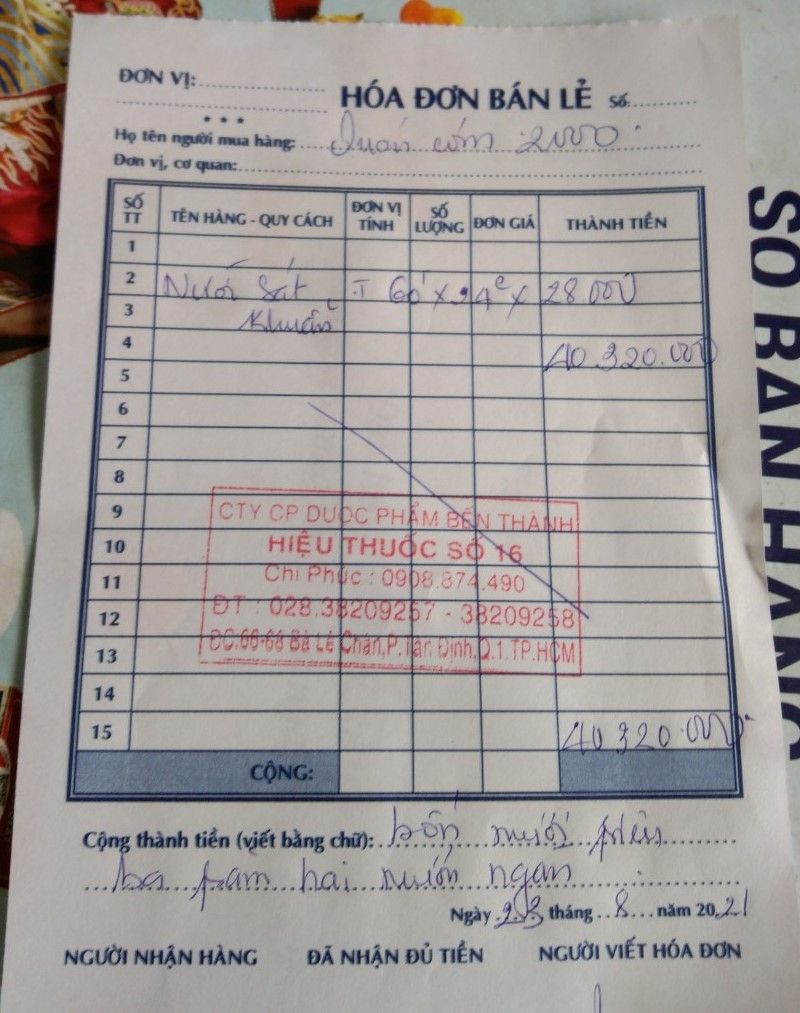 ĐƠN VỊ:
HÓA ĐƠN BÁN LẺ Số:
Họ tên người mua hàng: Quán cơm 2000
Đơn vị, cơ quan:
SỐ TT TÊN HÀNG - QUY CÁCH ĐƠN VỊ TÍNH SỐ LƯỢNG ĐƠN GIÁ THÀNH TIỀN
1
2 Nước Sát : T 60 x 24 c x 28.000
3 Khuẩn
4 40.320.000
5
6
7
8
9
10
11
12
13
14
15 40.320.000
CTY CP DƯỢC PHẨM BẾN THÀNH
HIỆU THUỐC SỐ 16
Chị Phúc : 0908.874.490
ĐT : 028.38209257 - 38209258
ĐC:66-68 Bà Lê Chân,P.Tân Định,Q.1.TP.HCM
CỘNG:
Cộng thành tiền (viết bằng chữ): bốn mươi triệu
ba trăm hai mươi ngàn
Ngày 23 tháng 8 năm 2021
NGƯỜI NHẬN HÀNG ĐÃ NHẬN ĐỦ TIỀN NGƯỜI VIẾT HÓA ĐƠN
SO BAN HANG